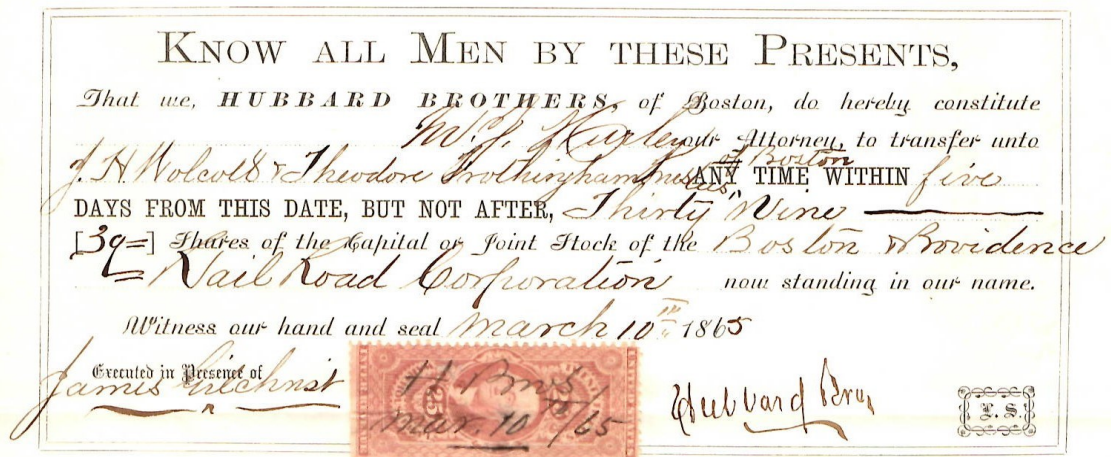 KNOW ALL MEN BY THESE PRESENTS,
That we, HUBBARD BROTHERS, of Boston, do hereby constitute
W. J. our Attorney, to transfer unto
J. H Wolcott & Theodore Frothingham Trustees, of Boston ANY TIME WITHIN five
DAYS FROM THIS DATE, BUT NOT AFTER, Thirty Nine
[39=] Shares of the Capital or Joint Stock of the Boston & Providence
Rail Road Corporation now standing in our name.
Witness our hand and seal March 10th 1865
Executed in Presence of
James Gilchrist
H Bros
25
Mar. 10 /65
Hubbard Bros
L. S.